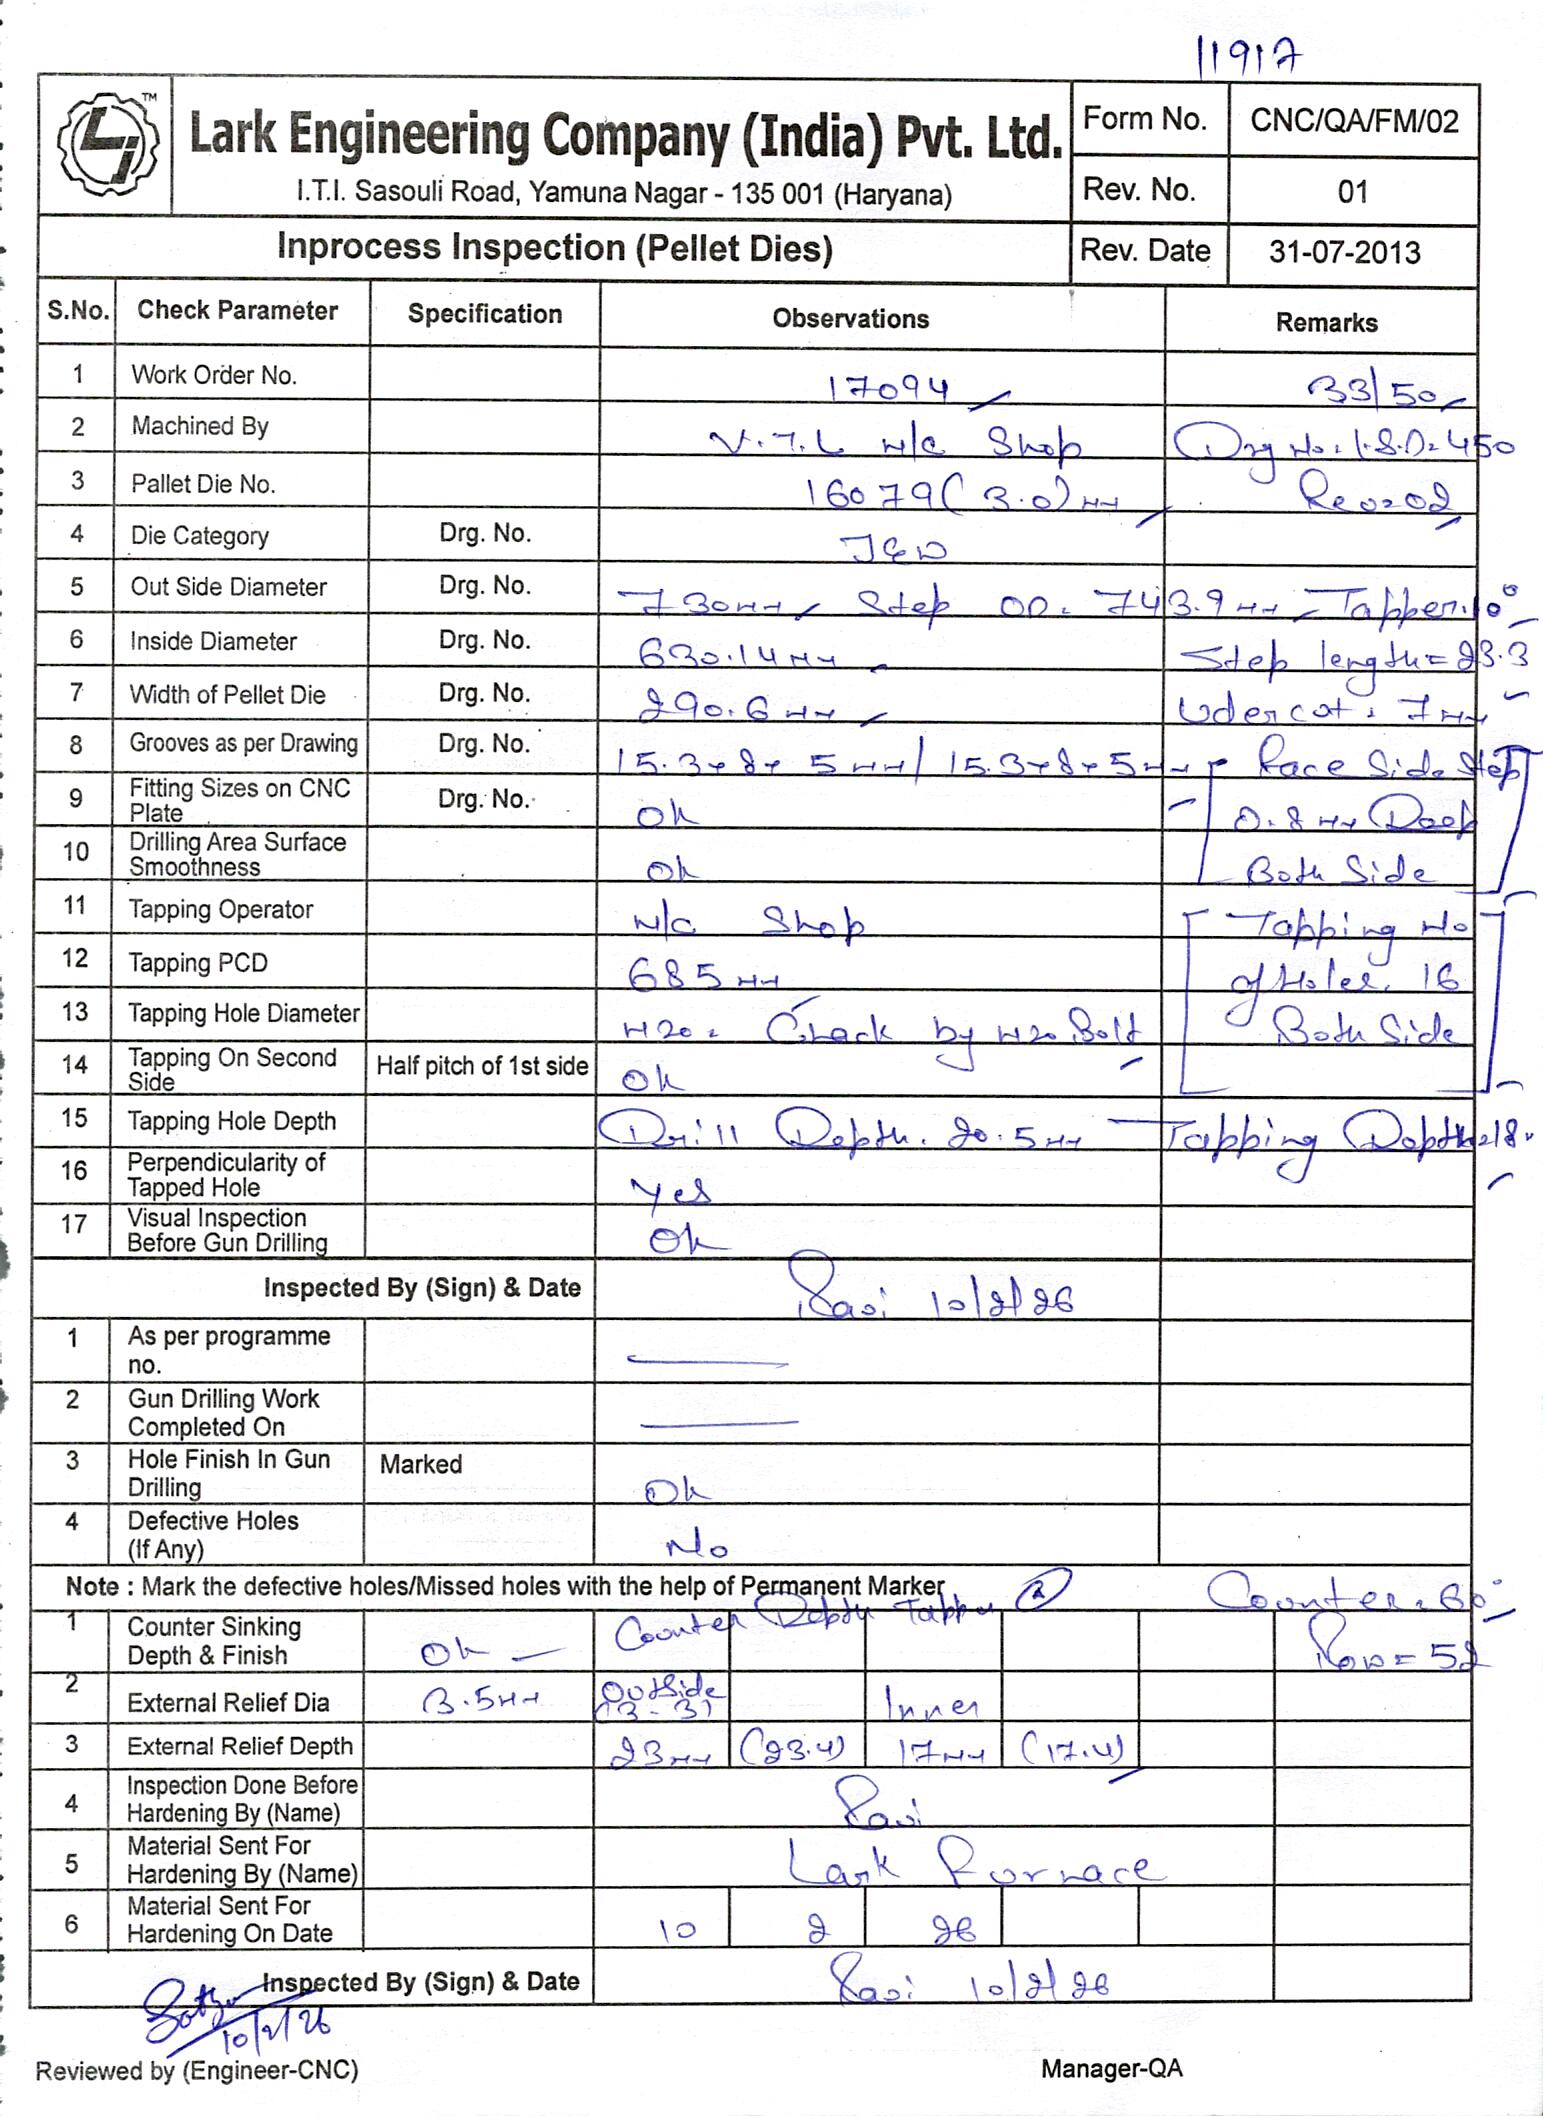 11917
TM
Lark Engineering Company (India) Pvt. Ltd.
I.T.I. Sasouli Road, Yamuna Nagar - 135 001 (Haryana)
Form No. CNC/QA/FM/02
Rev. No. 01
Inprocess Inspection (Pellet Dies)
Rev. Date 31-07-2013
S.No. Check Parameter Specification Observations Remarks
1 Work Order No. 17094 33/50
2 Machined By V.T.L M/C Shop Drg No: I.S.D= 450
3 Pallet Die No. 16079 (3.0) MM Rev=02
4 Die Category Drg. No.
5 Out Side Diameter Drg. No. 730MM Step OD. 743.9MM Tapper.10°
6 Inside Diameter Drg. No. 630.14MM Step length=23.3
7 Width of Pellet Die Drg. No. 290.6MM Udercot. 7MM
8 Grooves as per Drawing Drg. No. 15.3*8*5MM/15.3*8*5MM Face Side Step
9 Fitting Sizes on CNC Plate Drg. No. Ok 0.8MM Deep
10 Drilling Area Surface Smoothness Ok Both Side
11 Tapping Operator M/C Shop Tapping No
12 Tapping PCD 685MM of Holes. 16
13 Tapping Hole Diameter M20. Chack by M20 Bolt Both Side
14 Tapping On Second Side Half pitch of 1st side Ok
15 Tapping Hole Depth Drill Depth. 20.5MM Tapping Depth=18.
16 Perpendicularity of Tapped Hole Yes
17 Visual Inspection Before Gun Drilling Ok
Inspected By (Sign) & Date Ravi 10/2/26
1 As per programme no.
2 Gun Drilling Work Completed On
3 Hole Finish In Gun Drilling Marked Ok
4 Defective Holes (If Any) No
Note : Mark the defective holes/Missed holes with the help of Permanent Marker Counter.60°
1 Counter Sinking Depth & Finish Ok Counter Depth Tapper Row=52
2 External Relief Dia 3.5MM Outside Inner
3 External Relief Depth 23MM (23.4) 17MM (17.4)
4 Inspection Done Before Hardening By (Name) Ravi
5 Material Sent For Hardening By (Name) Lark Furnace
6 Material Sent For Hardening On Date 10 2 26
Inspected By (Sign) & Date Ravi 10/2/26
10/2/26
Reviewed by (Engineer-CNC) Manager-QA